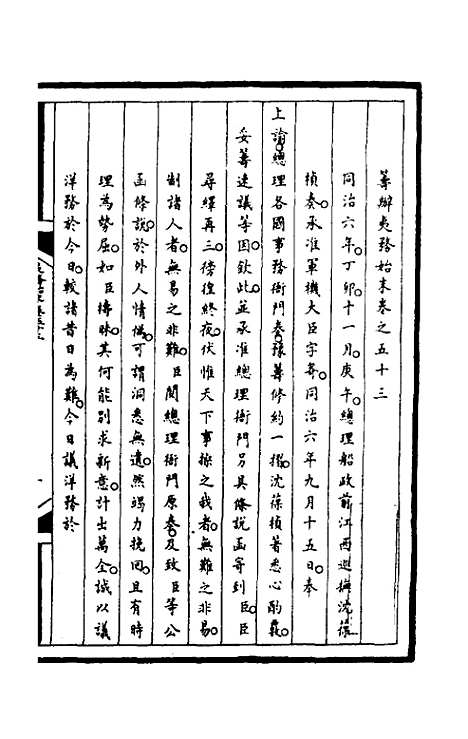 籌辦夷務始末卷之五十三
同治六年。丁卯。十一月。庚午。總理船政前江西巡撫沈葆
楨奏。承准軍機大臣字寄。同治六年九月十五日。奉
上諭。總理各國事務衙門奏。豫籌修約一摺。沈葆楨著悉心酌覈。
妥籌速議等因。欽此。並承准總理衙門另具條說函寄到臣。臣
尋繹再三。徬徨終夜。伏惟天下事操之我者。無難之非易。
制諸人者。無易之非難。臣閱總理衙門原奏。及致臣等公
函條說。於外人情偽。可謂洞悉無遺。然竭力挽回。且有時
理為勢屈。如臣檮昧。其何能別求新意。計出萬全。誠以議
洋務於今日。較諸昔日為難。今日議洋務於